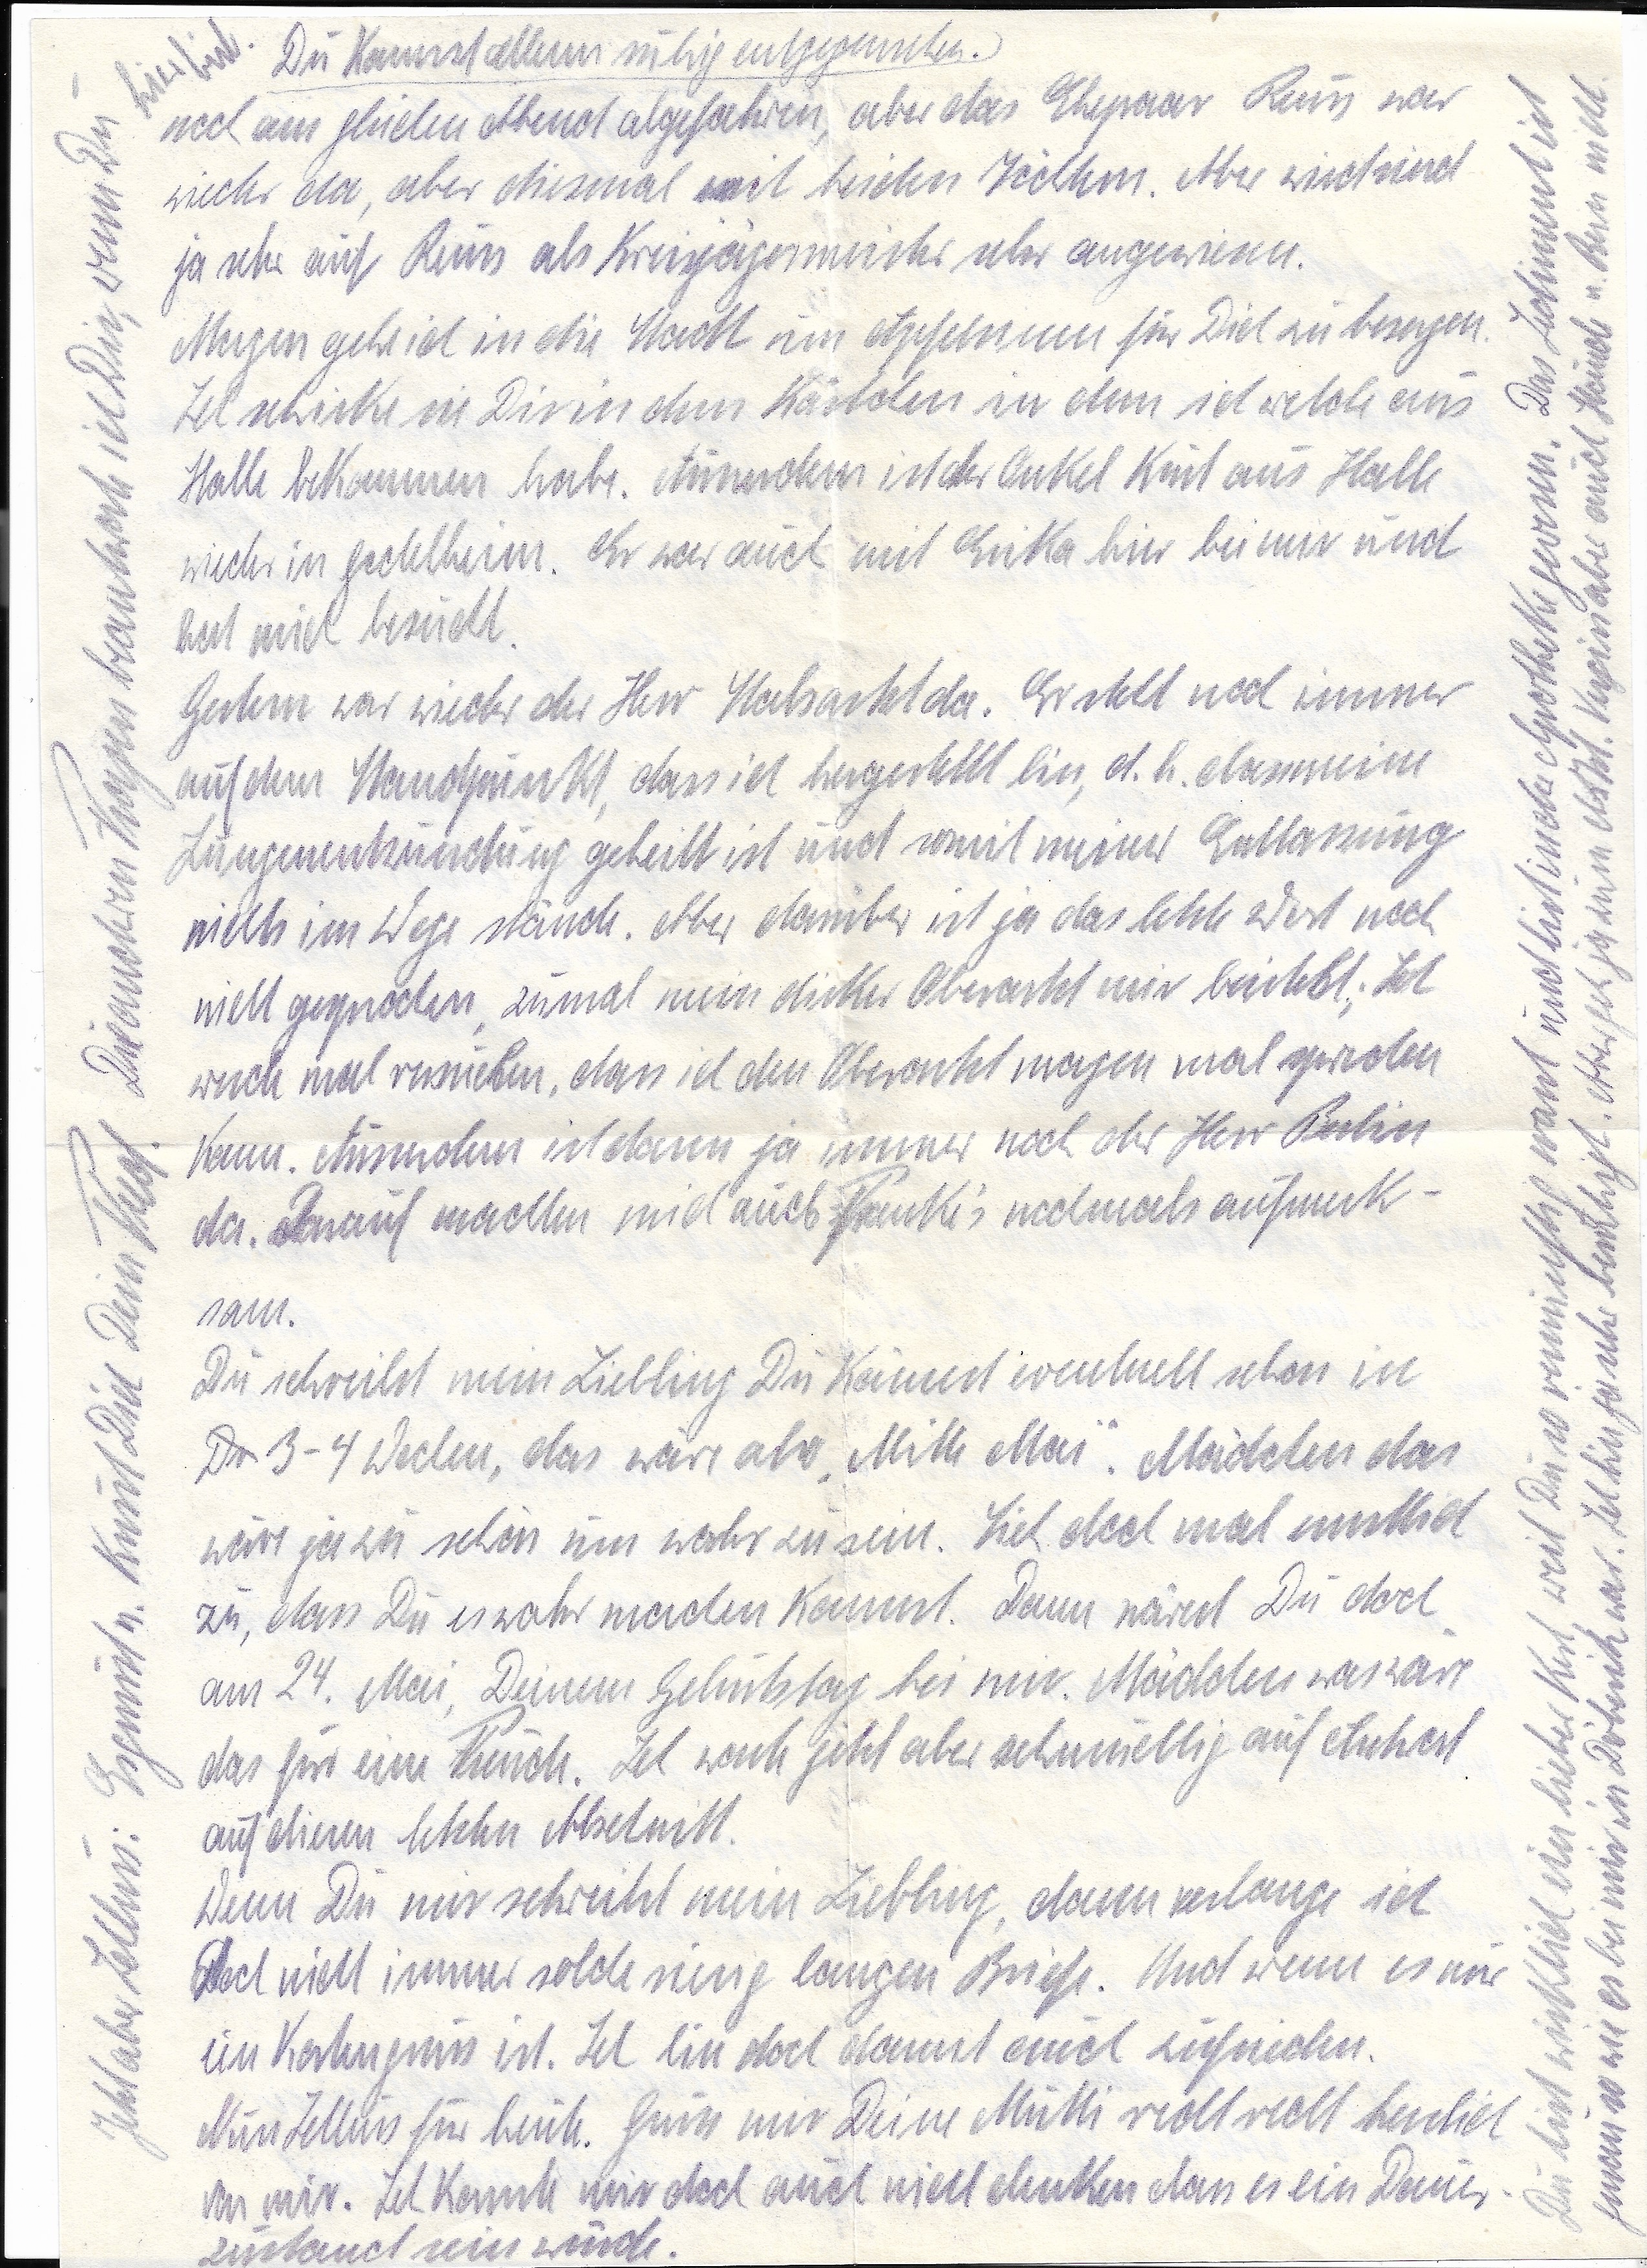 Du kannst allem ruhig entgegensehen.
noch am gleichen Abend abgefahren, aber das Ehepaar Reuss war
wieder da, aber diesmal mit beiden Töchtern. Aber wir sind
ja sehr auf Reuss als Kreisjägermeister sehr angewiesen.
Morgen gehe ich in die Stadt um Apfelsinen für Dich zu besorgen.
Ich schicke sie Dir in dem Kästchen in dem ich welche aus
Halle bekommen habe. Ausserdem ist der Onkel Kurt aus Halle
wieder in Godelheim. Er war auch mit Erika hier bei mir und
hat mich besucht.
Gestern war wieder der Herr Stabsarzt da. Er steht noch immer
auf dem Standpunkt, dass ich hergestellt bin, d. h. dass meine
Lungenentzündung geheilt ist und somit meiner Entlassung
nichts im Wege stände. Aber darüber ist ja das letzte Wort noch
nicht gesprochen, zumal mein dicker Oberarzt mir beisteht. Ich
werde mal versuchen, dass ich den Oberarzt morgen mal sprechen
kann. Ausserdem ist dann ja immer noch der Herr Berlin
da. Darauf machten mich auch Franke's nochmals aufmerk-
sam.
Du schreibst mein Liebling Du kämest eventuell schon in
3-4 Wochen, das wäre also "Mitte Mai". Mädchen das
wäre ja zu schön um wahr zu sein. Sieh doch mal
zu, dass Du es wahr machen kannst. Dann wärest Du doch
am 24. Mai, Deinem Geburtstag bei mir. Mädchen was wäre
das für eine Freude. Ich warte jetzt aber sehnsüchtig auf Antwort
auf diesen letzten Abschnitt.
Wenn Du mir schreibst mein Liebling, dann verlange ich
doch nicht immer solche riesig langen Briefe. Und wenn es nur
ein Kartengruss ist. Ich bin doch damit auch zufrieden.
Nun Schluss für heute. Grüss mir Deine Mutti recht recht herzlich
von mir. Ich konnte mir doch auch nicht denken dass es ein Dauer-
zustand sein würde.
Du bist wirklich ein lieber Kerl weil Du so vernünftig warst und bist in der Apotheke gewesen. Das Medikament ist
genau so wie es bei mir in war. Ich bin ja sehr beruhigt. Aber geh ja zum Arzt. Vergiss aber auch Hände u. Beine nicht.
Jetzt aber Schluss: Es grüsst u. küsst Dich Dein Theo. Die anderen Fragen beantworte ich Dir, wenn Du
hier bist.